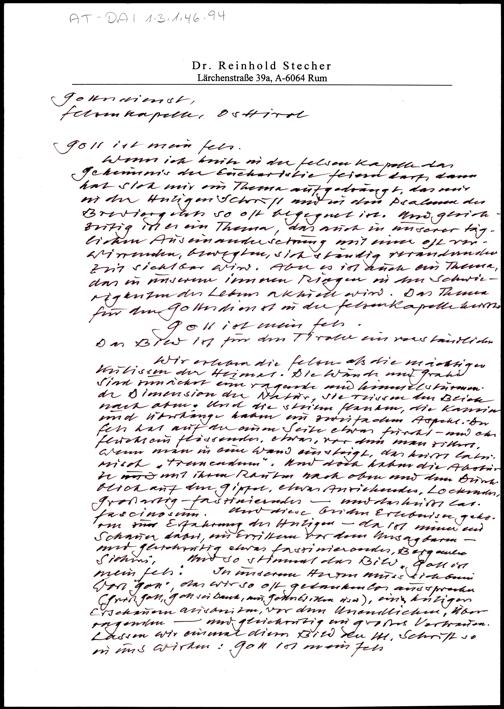 AT-DAI 1.3.1.46.94
Dr. Reinhold Stecher
Lärchenstraße 39a, A-6064 Rum
Gottesdienst,
Felsenkapelle, Osttirol
Gott ist mein Fels.
Wenn ich heute in der Felsenkapelle das
Geheimnis der Eucharistie feiern darf, dann
hat sich mir ein Thema aufgedrängt, das mir
in der Heiligen Schrift und in den Psalmen des
Breviergebets so oft begegnet ist. Und gleich-
zeitig ist es ein Thema, das auch in unserer täg-
lichen Auseinandersetzung mit einer oft ver-
wirrenden, bewegten, sich ständig verändernden
Zeit sichtbar wird. Aber es ist auch ein Thema,
das in unserem inneren Ringen in den Schwie-
rigkeiten des Lebens aktuell wird. Das Thema
für den Gottesdienst in der Felsenkapelle
Gott ist mein Fels.
Das Bild ist für den Tiroler ein verständliches
Wir erleben die Felsen als die mächtigen
Kulissen der Heimat. Die Wände und Grate
sind zunächst eine ragende und himmelstürmen-
de Dimension der Natur, sie reissen den Blick
nach oben. Und die steilen Flanken, die Kamine
und Überhänge haben einen zweifachen Aspekt. Der
Fels hat auf der einen Seite etwas Furcht- und
flösssendes, etwas, vor dem man zittert,
wenn man in eine Wand einsteigt, das heisst latei-
nisch „Tremendum". Und doch haben die Abstürze
mit ihren Kanten nach oben und dem
blick auf den Gipfel, etwas Anziehendes, Lockendes,
Grossartig-faszinierendes – und das heisst lat.
fascinosum. Und diese beiden Erlebnisse gehö-
ren zur Erfahrung des Heiligen – da ist immer ein
Schauer dabei, ein Zittern vor dem Unsagbaren –
und gleichzeitig etwas faszinierendes, Bergendes
Sicheres, Und so stimmt das Bild „Gott ist
mein Fels". In unserem Herzen muss sich beim
Wort „Gott", das wir so oft gedankenlos aussprechen
(Grüss Gott, Gott sei Dank,), ein heiliges
Erschauern ausbreiten, vor dem Unendlichen, Über-
ragenden – und gleichzeitig ein grosses Vertrauen.
Lassen wir einmal dieses Bild der Hl. Schrift so
in uns wirken: Gott ist mein Fels